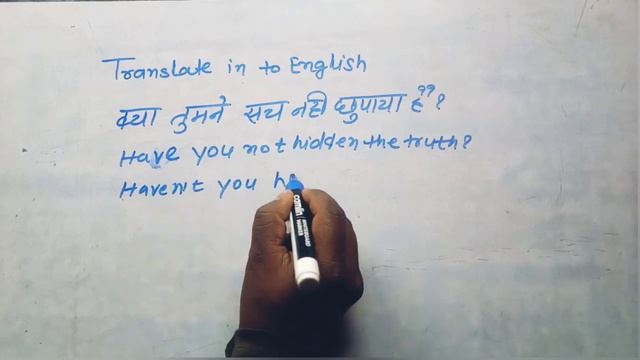 Translate in to English
क्या तुमने सच नही छुपाया है??
Have you not hidden the truth?
Haven't you h
camlin